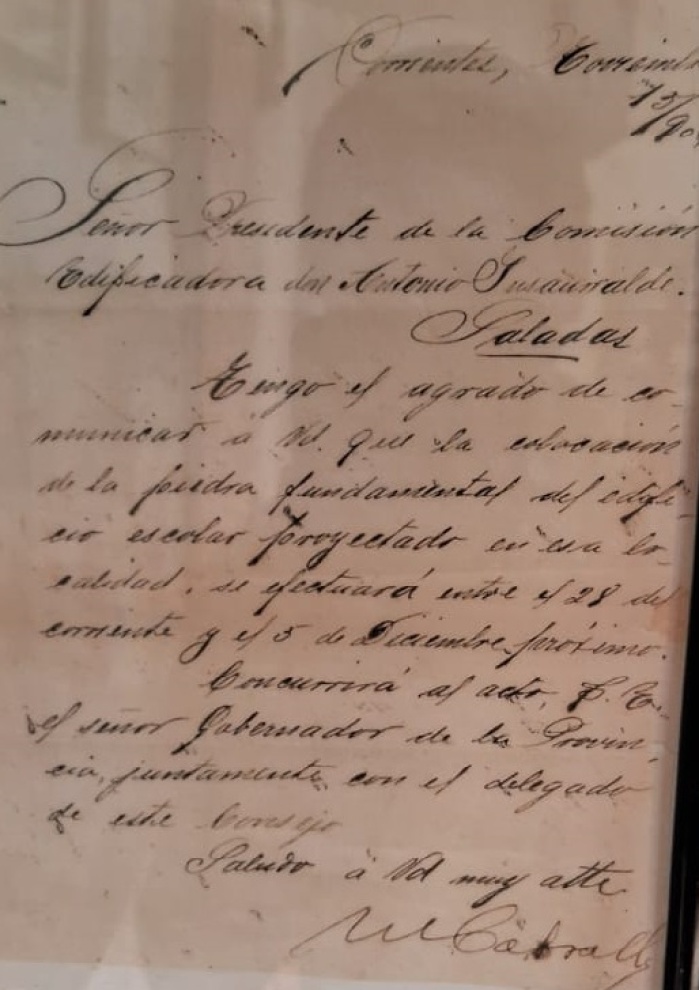 Corrientes, Noviem
15/90
Señor Presidente de la Comisión
Edificadora don Antonio Insaurralde.
Saladas
Tengo el agrado de co-
municar á Vd. que la colocación
de la piedra fundamental del edifi-
cio escolar proyectado en esa lo-
calidad, se efectuará entre el 28 del
corriente y el 5 de Diciembre próximo.
Concurrirá al acto, S. E.
el señor Gobernador de la Provin-
cia, juntamente con el delegado
de este Consejo
Saludo á Vd muy atte
M Cabral